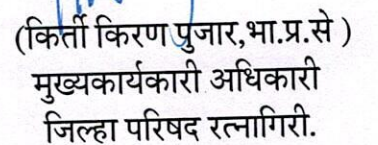 (किर्ती किरण पुजार,भा.प्र.से )
मुख्यकार्यकारी अधिकारी
जिल्हा परिषद रत्नागिरी.